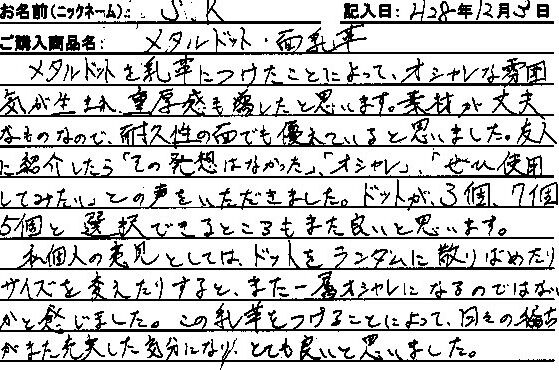 お名前(ニックネーム): S.K 記入日: H28年12月3日
ご購入商品名: メタルドット・面乳革
メタルドットを乳革につけたことによって、オシャレな雰囲
気が生まれ、重厚感も増したと思います。素材が丈夫
なものなので、耐久性の面でも優れていると思いました。友人
に紹介したら「その発想はなかった」、「オシャレ」、「ぜひ使用
してみたい」との声をいただきました。ドットが、3個、7個
5個と選択できるところもまた良いと思います。
私個人の意見としては、ドットをランダムに散りばめたり
サイズを変えたりすると、また一層オシャレになるのではない
かと感じました。この乳革をつけることによって、日々の稽古
がまた充実した気分になり、とても良いと思いました。